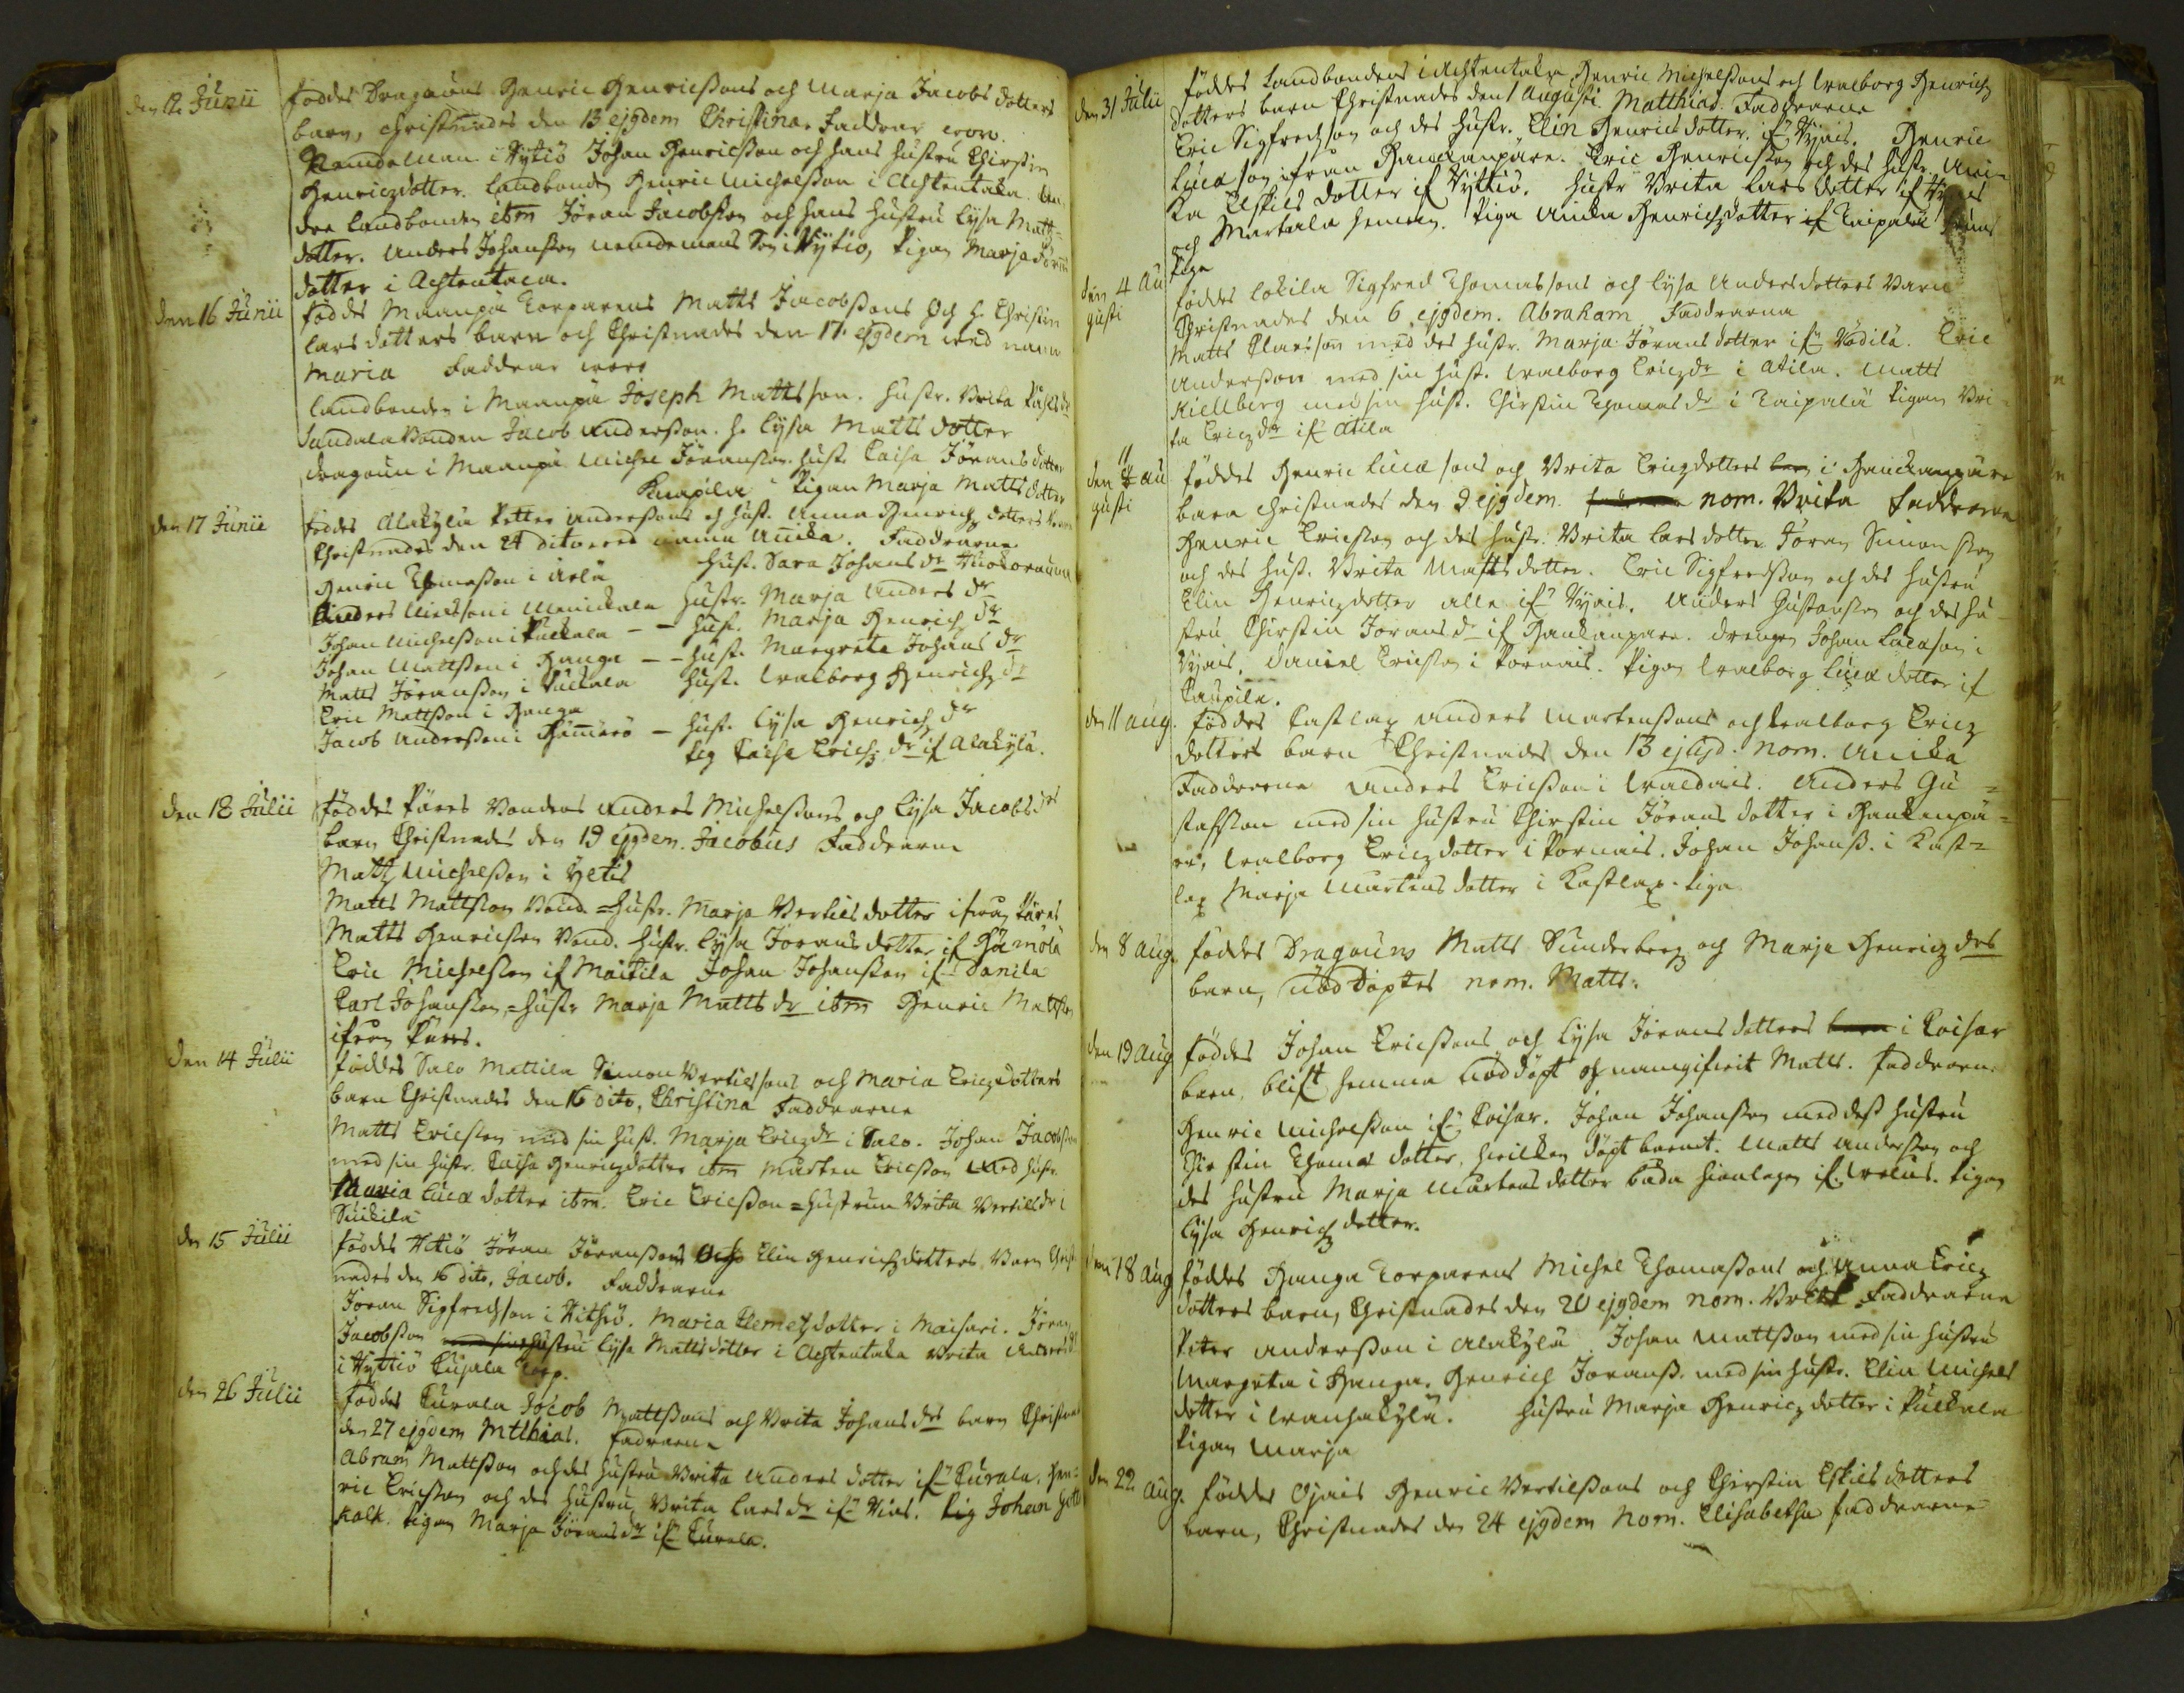 den 12 Junii föddes Dragouns Henric Henricssons och Marja Jacobs dotters
barn, christnades den 13 ejgdem Christina. Faddrar woro
Nemdeman i Nytiö Johan Henricsson och hans hustru Chirstin
Henriczdotter. Landbonden Henric Michelsson i Achtentaka.
dre Landbonden ibm Jöran Jacobsson och hans hustru Lysa Matts
dotter. Anders Johansson nemdemans Son i Nytiö, Pigan Marja Jörans
dotter i Achtentaca.
den 16 Junii föddes Maanpä Torparens Matts Jacobssons och h. Christin
Lars dotters barn och Christnades den 17 ejgdem med namn
Maria Faddrar woro
Landbonden i Maanpä Joseph Mattsson. hustr. Brita
Sandala Bonden Jacob Andersson. h. Lysa Matts dotter
dragoun i Maanpä Michel Jöransson hust. Caisa Jörans dotter
Knapila Pigan Marja Matts dotter
den 17 Junii föddes Alakylä Petter Anderssons och hust. Anna Henrichz dotters barn
Christnades den 24 dito med namn Anika. Faddrarne
Henric Thomasson i Arlä hust. Sara Johans dr
Anders Nielsson i hustr. Marja Anders dr
Johan Michelsson i Puckala - - hust. Marja Henrichz dr
Johan Mattsson i Hanga - - hust. Margreta Johans dr
Matts Jöransson i Puckala hust. Walborg Henrichz dr
Eric Mattsson i Hanga
Jacob Andersson i - hust. Lysa Henrichz dr
Pig Caisa Erichz dr if Alakylä.
den 18 Julii föddes Päres Bondens Anders Michelssons och Lysa Jacobs drs
barn Christnades den 19 ejgdem. Jacobus Faddrarne
Matz Michelsson i Yltis
Matts Mattsson Bond. = hustr. Marja Bertils dotter ifrån Päres
Matts Henricsson Bond. hustr. Lysa Jorans dotter if Hämölä
Eric Michelsson if Maitila Johan Johansson if Danila
Carl Johansson, = hustr Marja Matts dr ibm Henric Mattsson
ifrån Päres.
den 14 Julii föddes Salo Mattila Simon Bertilssons och Maria Ericz dotters
barn Christnades den 16 dito, Christina Faddrarne
Matts Ericsson med sin hust. Marja Ericz dr i Salo. Johan Jacobsson
med sin hustr. Caisa Henricz dotter ibm Mårten Ericsson med hustr.
Maria Lucæ dotter ibm. Eric Ericsson = hustrun Brita Bertils dr i
Suikila
den 15 Julii föddes Hitiö Jöran Jöranssons och Elin Henrichz dotters Barn Christ
nades den 16 dito. Jacob. Faddrarne
Joran Sigfredsson i Hithiö. Maria Clemetz dotter i Maisari. Jöran
Jacobsson med sin hustru Lysa Matts dotter i Achtentaka Brita Anders dr
i Nyttiö Cujala Torp.
den 26 Julii föddes Curala Jacob Mattssons och Brita Johans drs barn Christnad
den 27 ejgdem Mtthias. Fadrarne
Abram Mattsson och des hustru Brita Anders dotter if Curala. Hen=
ric Ericsson och des hustru Brita Lars dr if Nias. Pig Johan Gott
kalk. Pigan Marja Jörans dr if Curala.
den 31 Julii föddes Landbondens i Achtentaka Henric Michelssons och Walborg Henrichz
dotters barn Christnades den 1 Augusti. Matthias. Faddrarne
Eric Sigfredsson och des hustr. Elin Henrics dotter if Nynis. Henric
Lucæson ifrån Hauckanpäre. Eric Henricsson och des hustr. Ani=
ka Eskils dotter if Nyttiö. hustr Brita Lars dotter if
och Martala hemman. Piga Anika Henrichz dotter if Taipala
Piga
den 4 Au
gusti föddes Lokila Sigfred Thomassons och Lysa Andersdotters Barn
Christnades den 6 ejgdem. Abraham Faddrarna
Matts Clasisson med des hustr. Marja Jörans dotter if Vådila. Eric
Andersson med sin hust. Walborg Ericz dr i Atila. Matts
Kiellberg med sin hust. Chirstin Thomas dr i Taipala Pigan Bri
ta Ericz dr if Atila
den 11 Au
gusti föddes Henric Lucæ sons och Brita Ericz dotters i Hauckanpäre
barn christnades den 9 ejgdem. nom. Brita Faddrarna
Henric Ericsson och des hustr. Brita Lars dotter Jöran Simonsson
och des hust. Brita Matts dotter. Eric Sigfredsson och des hustru
Elin Henricz dotter alla if Nyais. Anders Gustavsson och des hu
stru Chirstin Jörans dr if Hauckanpare. drengen Johan Lucæson i
Nyais. Daniel Ericsson i Pornais. Pigan Walborg Lucæ dotter if
Caupila.
den 11 aug. föddes Castlax Anders Martenssons och Walborg Ericz
dotters barn Christnades den 13 ejgd. nom. Anika
Faddrarne Anders Ericsson i Waldais. Anders Gu=
stafsson med sin hustru Chirstin Jörans dotter i Hauckanpä=
re, Walborg Ericz dotter i Pornais. Johan Johanss. i Kast=
lax Marja Martens dotter i Kastlax. Piga
den 8 aug. föddes Dragouns Matts Sunderberg och Marja Henricz drs
barn, nöddöptes nom. Matts.
den 19 Aug föddes Johan Ericssons och Lysa Jörans dotters i Coisar
barn, blifit hemma nöddöpt och namngifwit Matts. faddrarn.
Henric Michelsson if Coisar. Johan Johansson med dess hustru
Chirstin Thomas dotter, hwilken döpt barnet. Matts Andersson och
des hustru Marja Martens dotter båda if. Pigan
Lysa Henrichz dotter.
den 18 Aug föddes Hanga Torparens Michel Thomassons och Anna Ericz
dotters barn, Christnades den 20 ejgdem nom. Brita Faddrarna
Peter Andersson i Alakylä. Johan Mattsson med sin hustru
Margeta i Hanga. Henrich Joranss. med sin hustr. Elin Michels
dotter i Wanhakylä. hustru Marja Henricz dotter i Puckala
Pigan Marja
den 22 aug. föddes Ojais Henric Bertilssons och Chirstin Eskils dotters
barn, Christnades den 24 ejgdem Nom. Elisabetha faddrarne